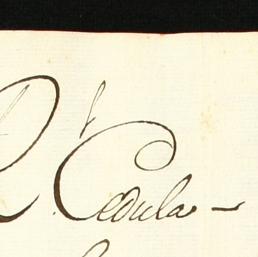 R. Cedula -